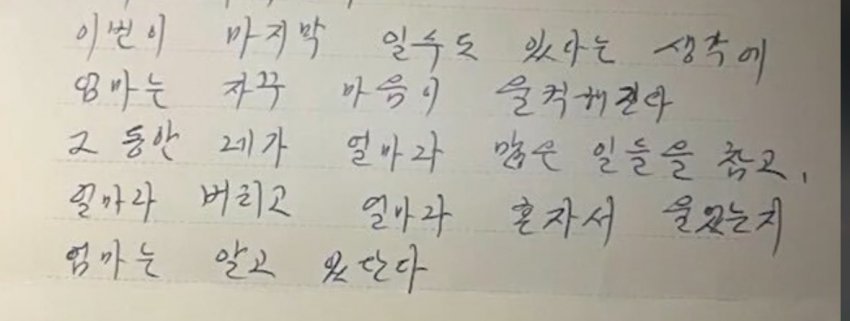 이번이 마지막 일수도 있다는 생각에
엄마는 자꾸 마음이 울컥해진다
그 동안 네가 얼마나 많은 일들을 참고,
얼마나 버티고 얼마나 혼자서 울었는지
엄마는 알고 있단다